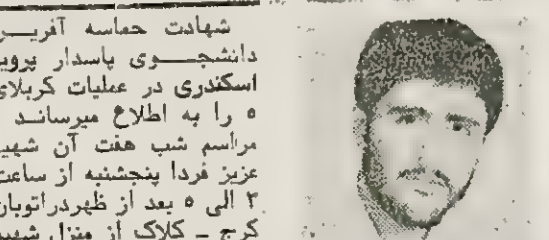 شهادت حماسه آفریـــن
دانشجـــوی پاسدار پرویز
اسکندری در عملیات کربلای
۵ را به اطلاع میرسانـد
مراسم شب هفت آن شهید
عزیز فردا پنجشنبه از ساعت
۳ الی ۵ بعد از ظهردراتوبان
کرج ــ کلاک از منزل شهید